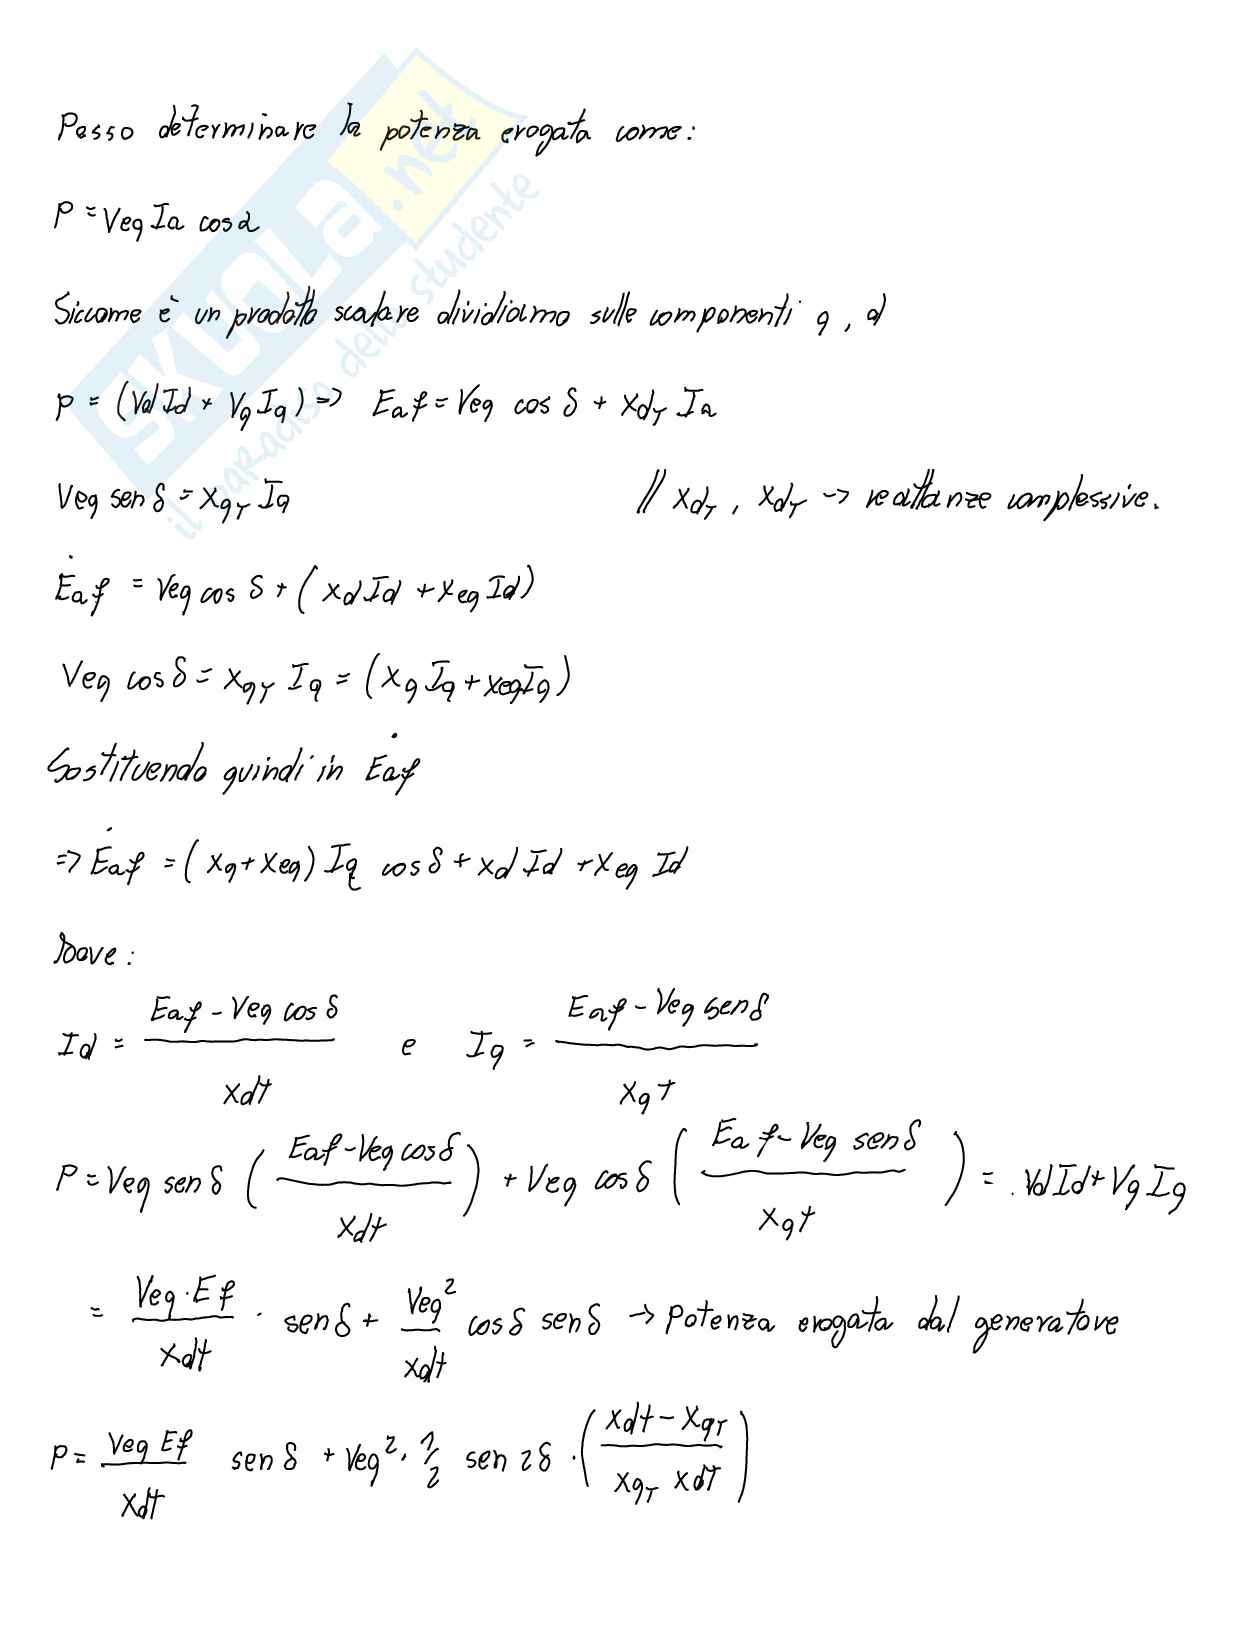 Posso determinare la potenza erogata come:
P = Veq Ia cos α
Siccome è un prodotto scalare dividiamo sulle componenti q, d
P = (Vd Id + Vq Iq) => Eaf = Veq cos δ + XdT Ia
Veq sen δ = XqT Iq // XdT, XdT -> reattanze complessive.
Ėaf = Veq cos δ + (Xd Id + Xeq Id)
Veq cos δ = XqT Iq = (Xq Iq + Xeq Iq)
Sostituendo quindi in Ėaf
=> Ėaf = (Xq + Xeq) Iq cos δ + Xd Id + Xeq Id
Dove:
Id = (Eaf - Veq cos δ) / Xdt e Iq = (Eaf - Veq sen δ) / Xqt
P = Veq sen δ ((Eaf - Veq cos δ) / Xdt) + Veq cos δ ((Eaf - Veq sen δ) / Xqt) = Vd Id + Vq Iq
= (Veq · Ef) / Xdt · sen δ + Veq² / Xdt cos δ sen δ -> Potenza erogata dal generatore
P = (Veq Ef) / Xdt sen δ + Veq² · 1/2 sen 2δ · ((Xdt - XqT) / (XqT XdT))
SKUOLA.net
il paradiso dello studente